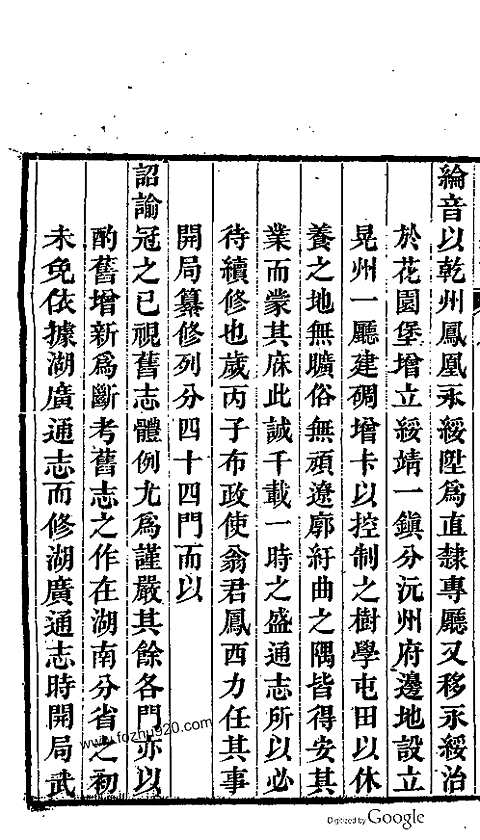 綸音以乾州鳳凰永綏陞爲直隸專廳又移永綏治
於花園堡增立綏靖一鎭分沅州府邊地設立
晃州一廳建碉增卡以控制之樹學屯田以休
養之地無曠俗無頑遼廓紆曲之隅皆得安其
業而蒙其庥此誠千載一時之盛通志所以必
待續修也歲丙子布政使翁君鳳西力任其事
開局纂修列分四十四門而以
詔諭冠之已視舊志體例尤爲謹嚴其餘各門亦以
酌舊增新爲斷考舊志之作在湖南分省之初
未免依據湖廣通志而修湖廣通志時開局武
www.fozhu920.com
Digitized by Google